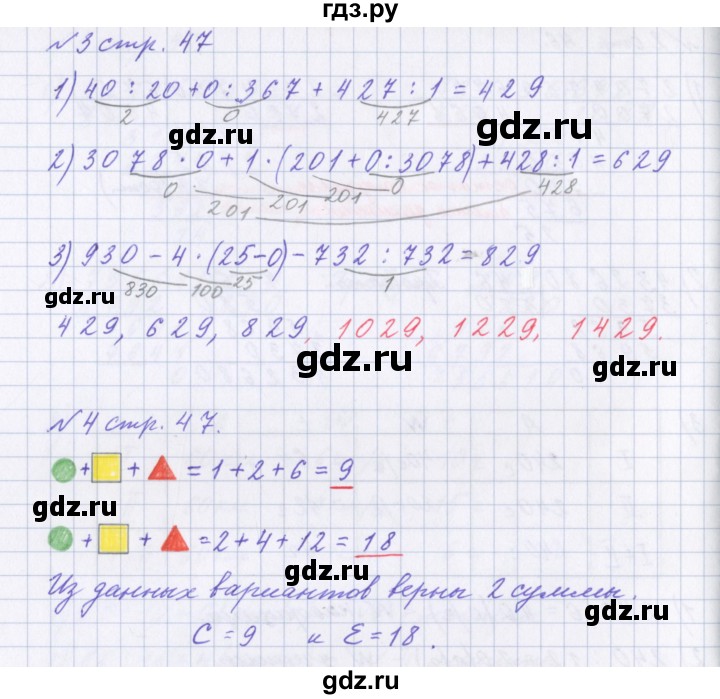 гдз.ру
№3 стр. 47
1) 40 : 20 + 0 : 367 + 427 : 1 = 429
2 0 427
gdz.ru
2) 3078 · 0 + 1 · (201 + 0 : 3078) + 428 : 1 = 629
gdz.ru
0 201 201 201 0 428
3) 930 - 4 · (25 - 0) - 732 : 732 = 829
830 100 25 1
gdz.ru
gdz.ru
429, 629, 829, 1029, 1229, 1429.
gdz.ru
gdz.ru
№4 стр. 47.
gdz.ru
+ + = 1 + 2 + 6 = 9
gdz.ru
gdz.ru
+ + = 2 + 4 + 12 = 18
gdz.ru
Из данных вариантов верны 2 суммы.
gdz.ru
C = 9 и E = 18.
gdz.ru
gdz.ru